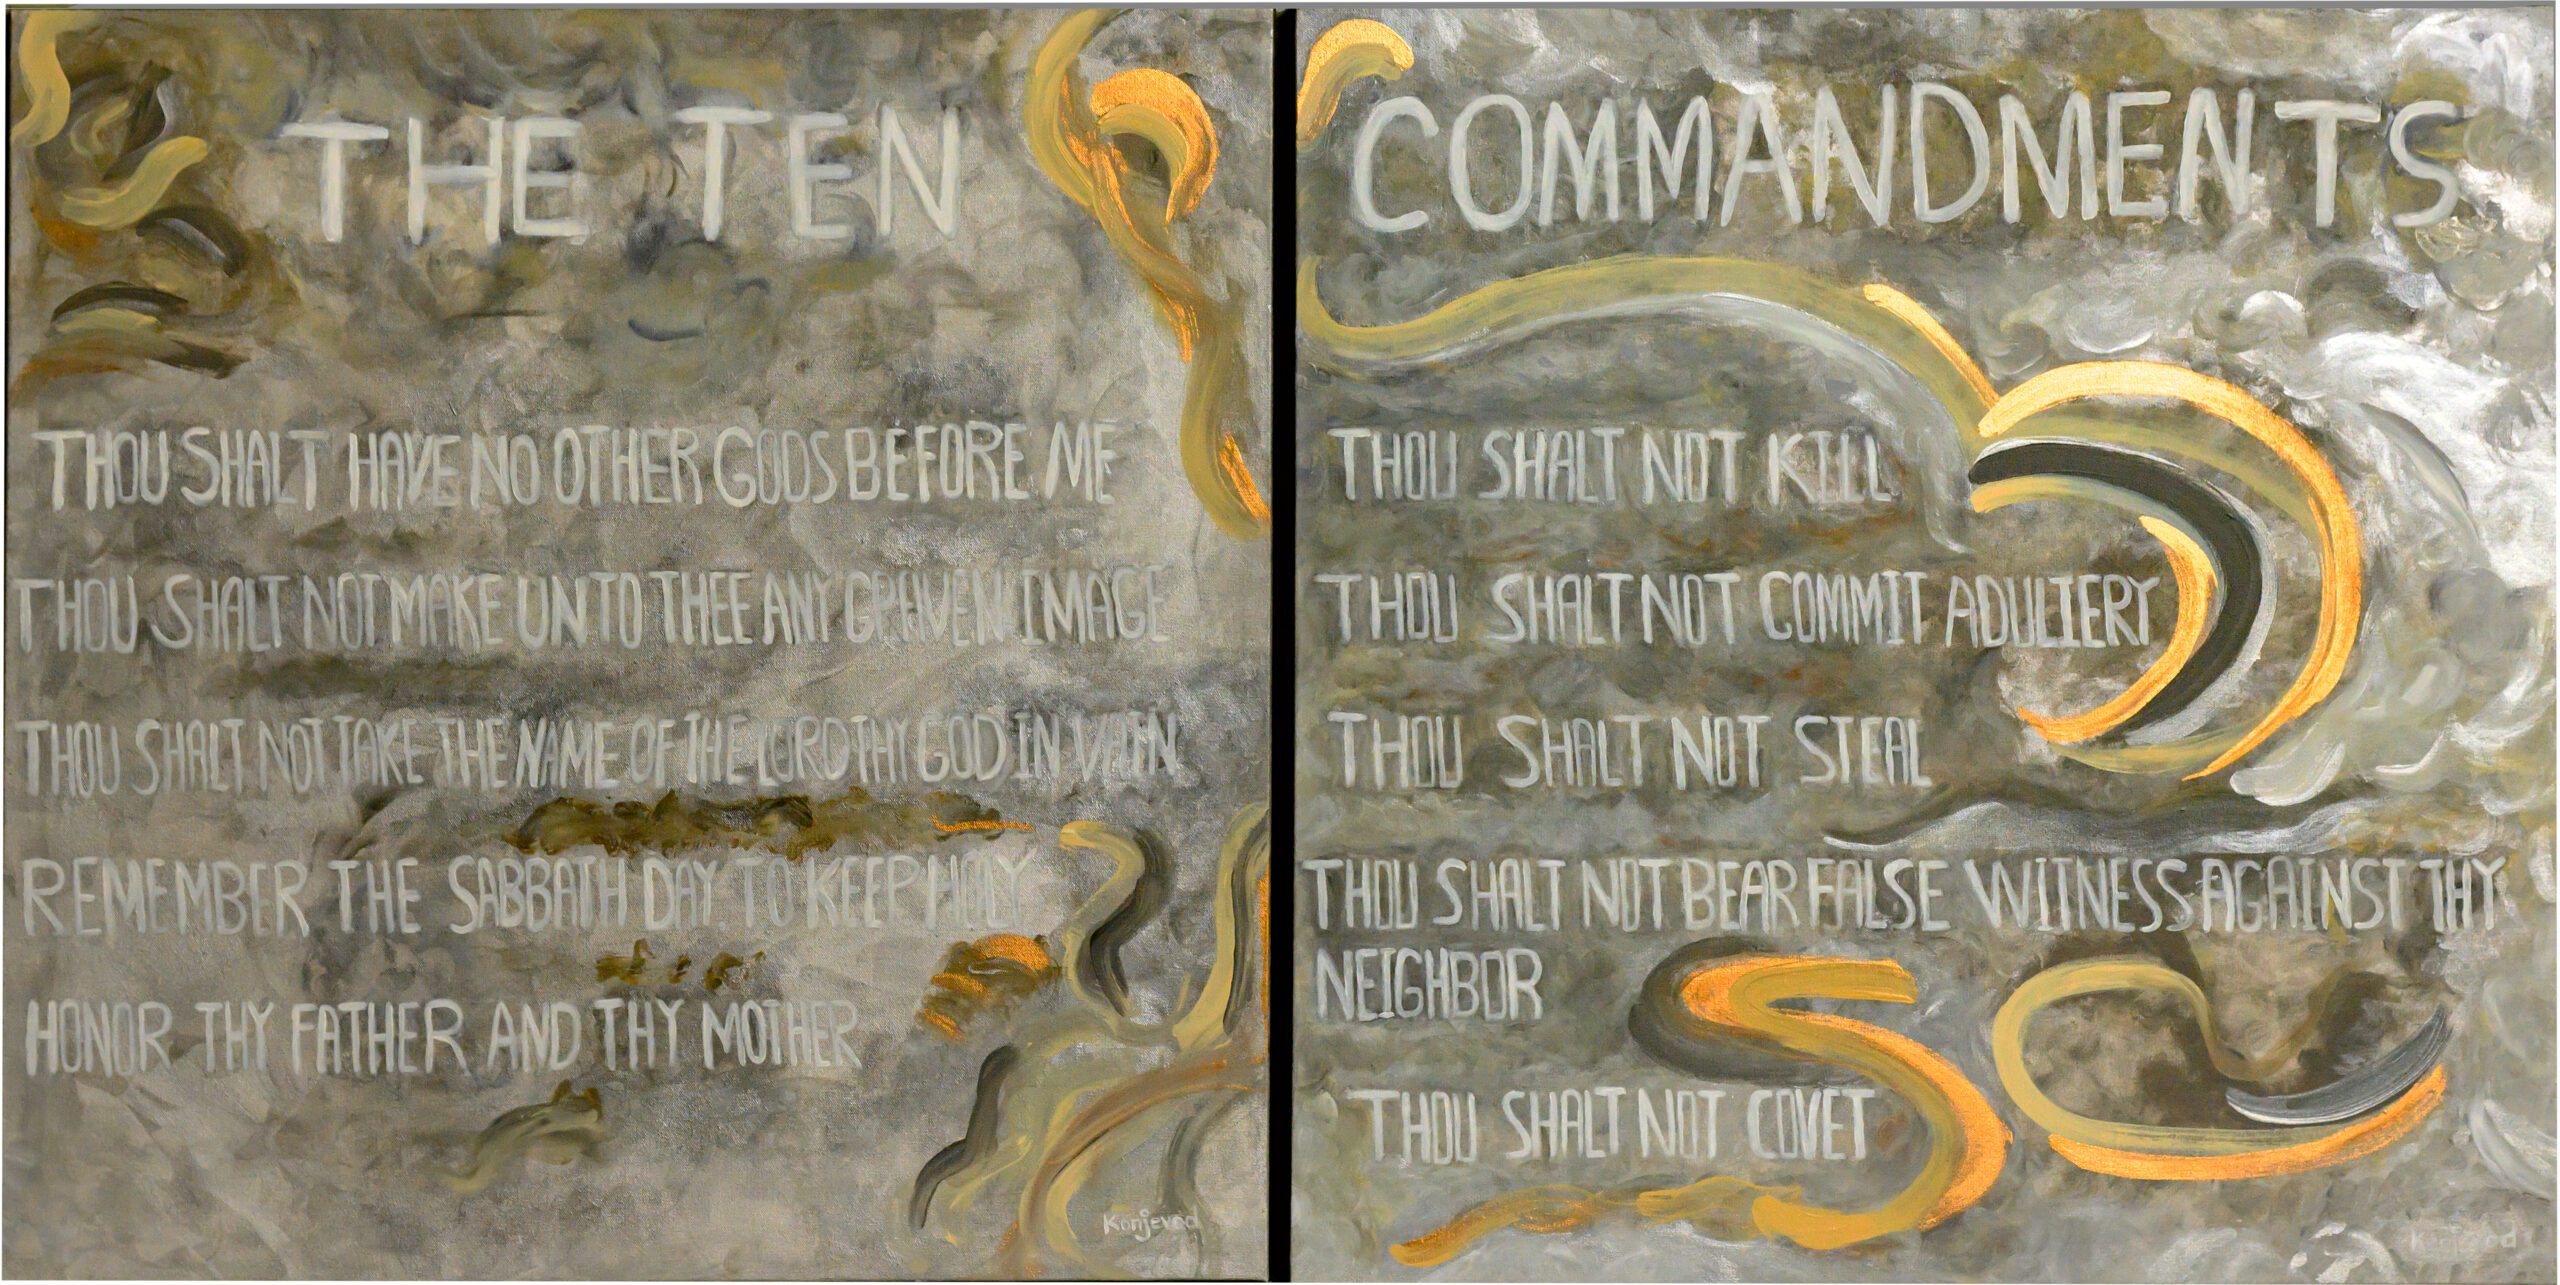 THE TEN
THOU SHALT HAVE NO OTHER GODS BEFORE ME
THOU SHALT NOT MAKE UNTO THEE ANY GRAVEN IMAGE
THOU SHALT NOT TAKE THE NAME OF THE LORD THY GOD IN VAIN
REMEMBER THE SABBATH DAY. TO KEEP HOLY
HONOR THY FATHER AND THY MOTHER
Konjevod
COMMANDMENTS
THOU SHALT NOT KILL
THOU SHALT NOT COMMIT ADULTERY
THOU SHALT NOT STEAL
THOU SHALT NOT BEAR FALSE WITNESS AGAINST THY
NEIGHBOR
THOU SHALT NOT COVET
Konjevod